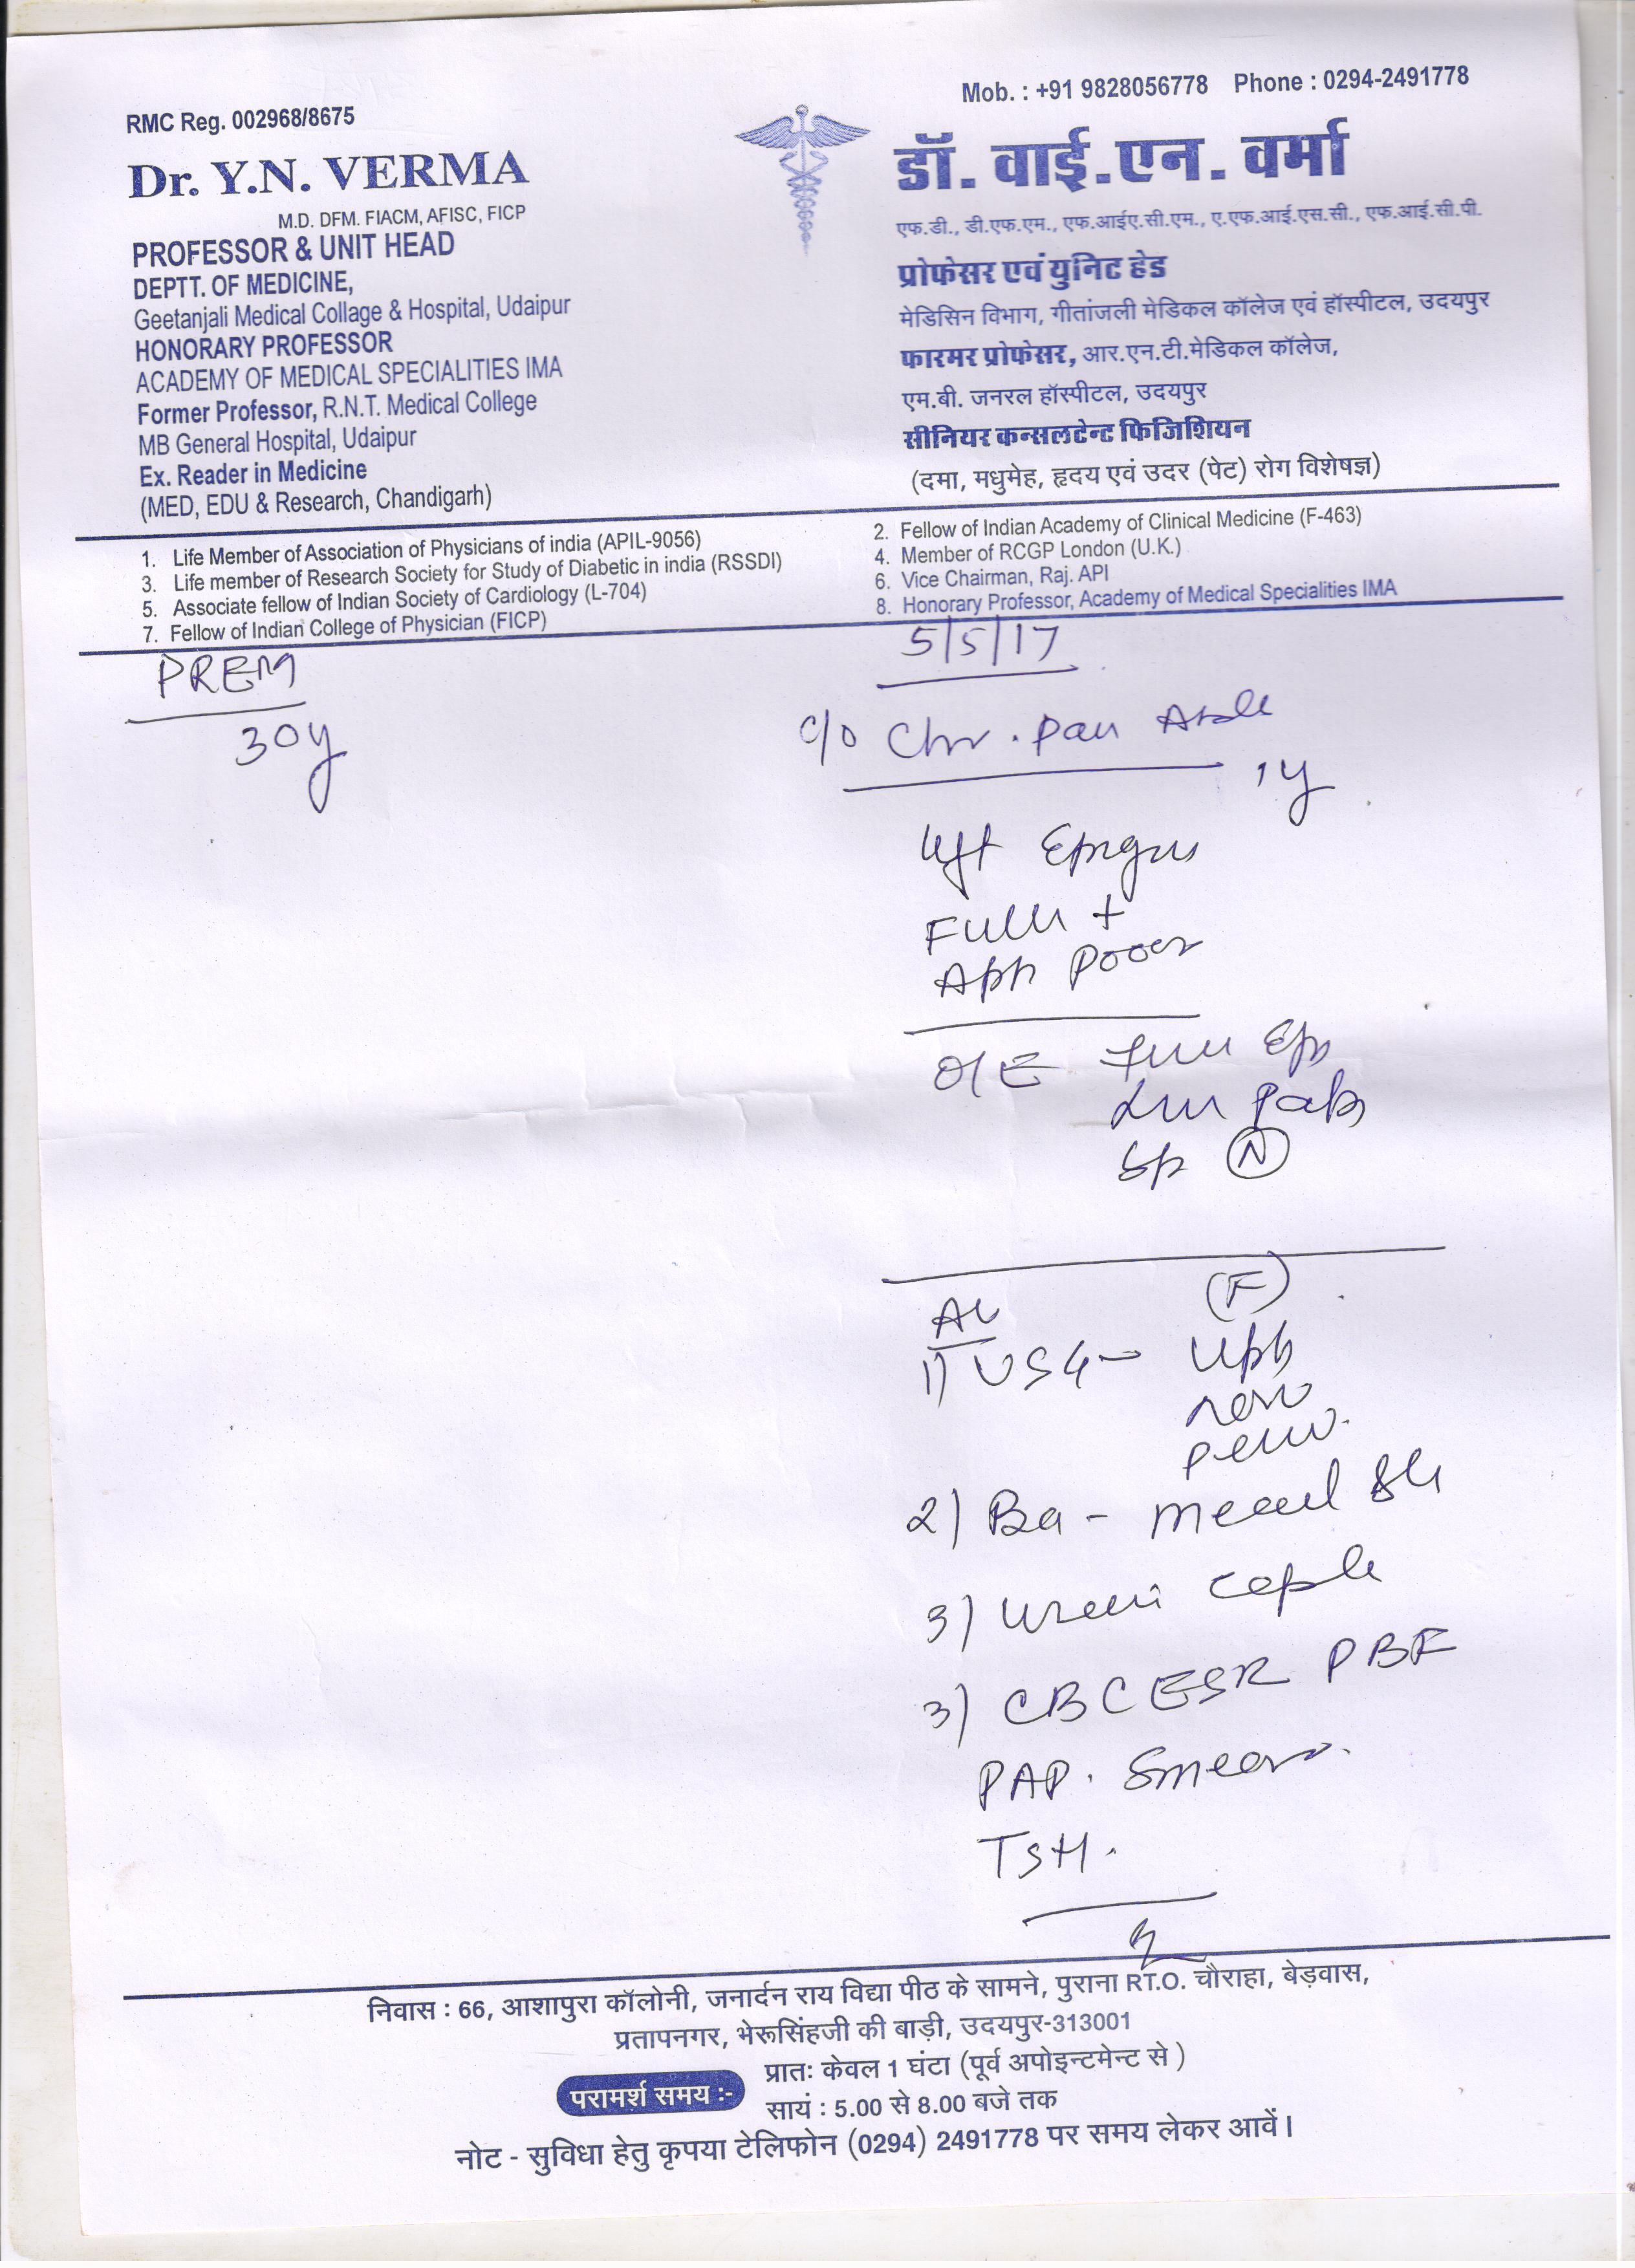 RMC Reg. 002968/8675
Mob. : +91 9828056778 Phone : 0294-2491778
Dr. Y.N. VERMA
M.D. DFM. FIACM, AFISC, FICP
PROFESSOR & UNIT HEAD
DEPTT. OF MEDICINE,
Geetanjali Medical Collage & Hospital, Udaipur
HONORARY PROFESSOR
ACADEMY OF MEDICAL SPECIALITIES IMA
Former Professor, R.N.T. Medical College
MB General Hospital, Udaipur
Ex. Reader in Medicine
(MED, EDU & Research, Chandigarh)
डॉ. वाई.एन. वर्मा
एफ.डी., डी.एफ.एम., एफ.आईए.सी.एम., ए.एफ.आई.एस.सी., एफ.आई.सी.पी.
प्रोफेसर एवं युनिट हेड
मेडिसिन विभाग, गीतांजली मेडिकल कॉलेज एवं हॉस्पीटल, उदयपुर
फारमर प्रोफेसर, आर.एन.टी.मेडिकल कॉलेज,
एम.बी. जनरल हॉस्पीटल, उदयपुर
सीनियर कन्सलटेन्ट फिजिशियन
(दमा, मधुमेह, हृदय एवं उदर (पेट) रोग विशेषज्ञ)
1. Life Member of Association of Physicians of india (APIL-9056)
2. Fellow of Indian Academy of Clinical Medicine (F-463)
3. Life member of Research Society for Study of Diabetic in india (RSSDI)
4. Member of RCGP London (U.K.)
5. Associate fellow of Indian Society of Cardiology (L-704)
6. Vice Chairman, Raj. API
7. Fellow of Indian College of Physician (FICP)
8. Honorary Professor, Academy of Medical Specialities IMA
PREM
30y
5/5/17
c/o Chr. Pain
1y
left
+
App Poor
O/E
Sp N
(F)
1) USG -
2) Ba - meal
3) Urine
3) CBC ESR PBF
PAP. Smear.
TSH.
निवास : 66, आशापुरा कॉलोनी, जनार्दन राय विद्या पीठ के सामने, पुराना RT.O. चौराहा, बेड़वास,
प्रतापनगर, भेरूसिंहजी की बाड़ी, उदयपुर-313001
परामर्श समय :-
प्रातः केवल 1 घंटा (पूर्व अपोइन्टमेन्ट से )
सायं : 5.00 से 8.00 बजे तक
नोट - सुविधा हेतु कृपया टेलिफोन (0294) 2491778 पर समय लेकर आवें।